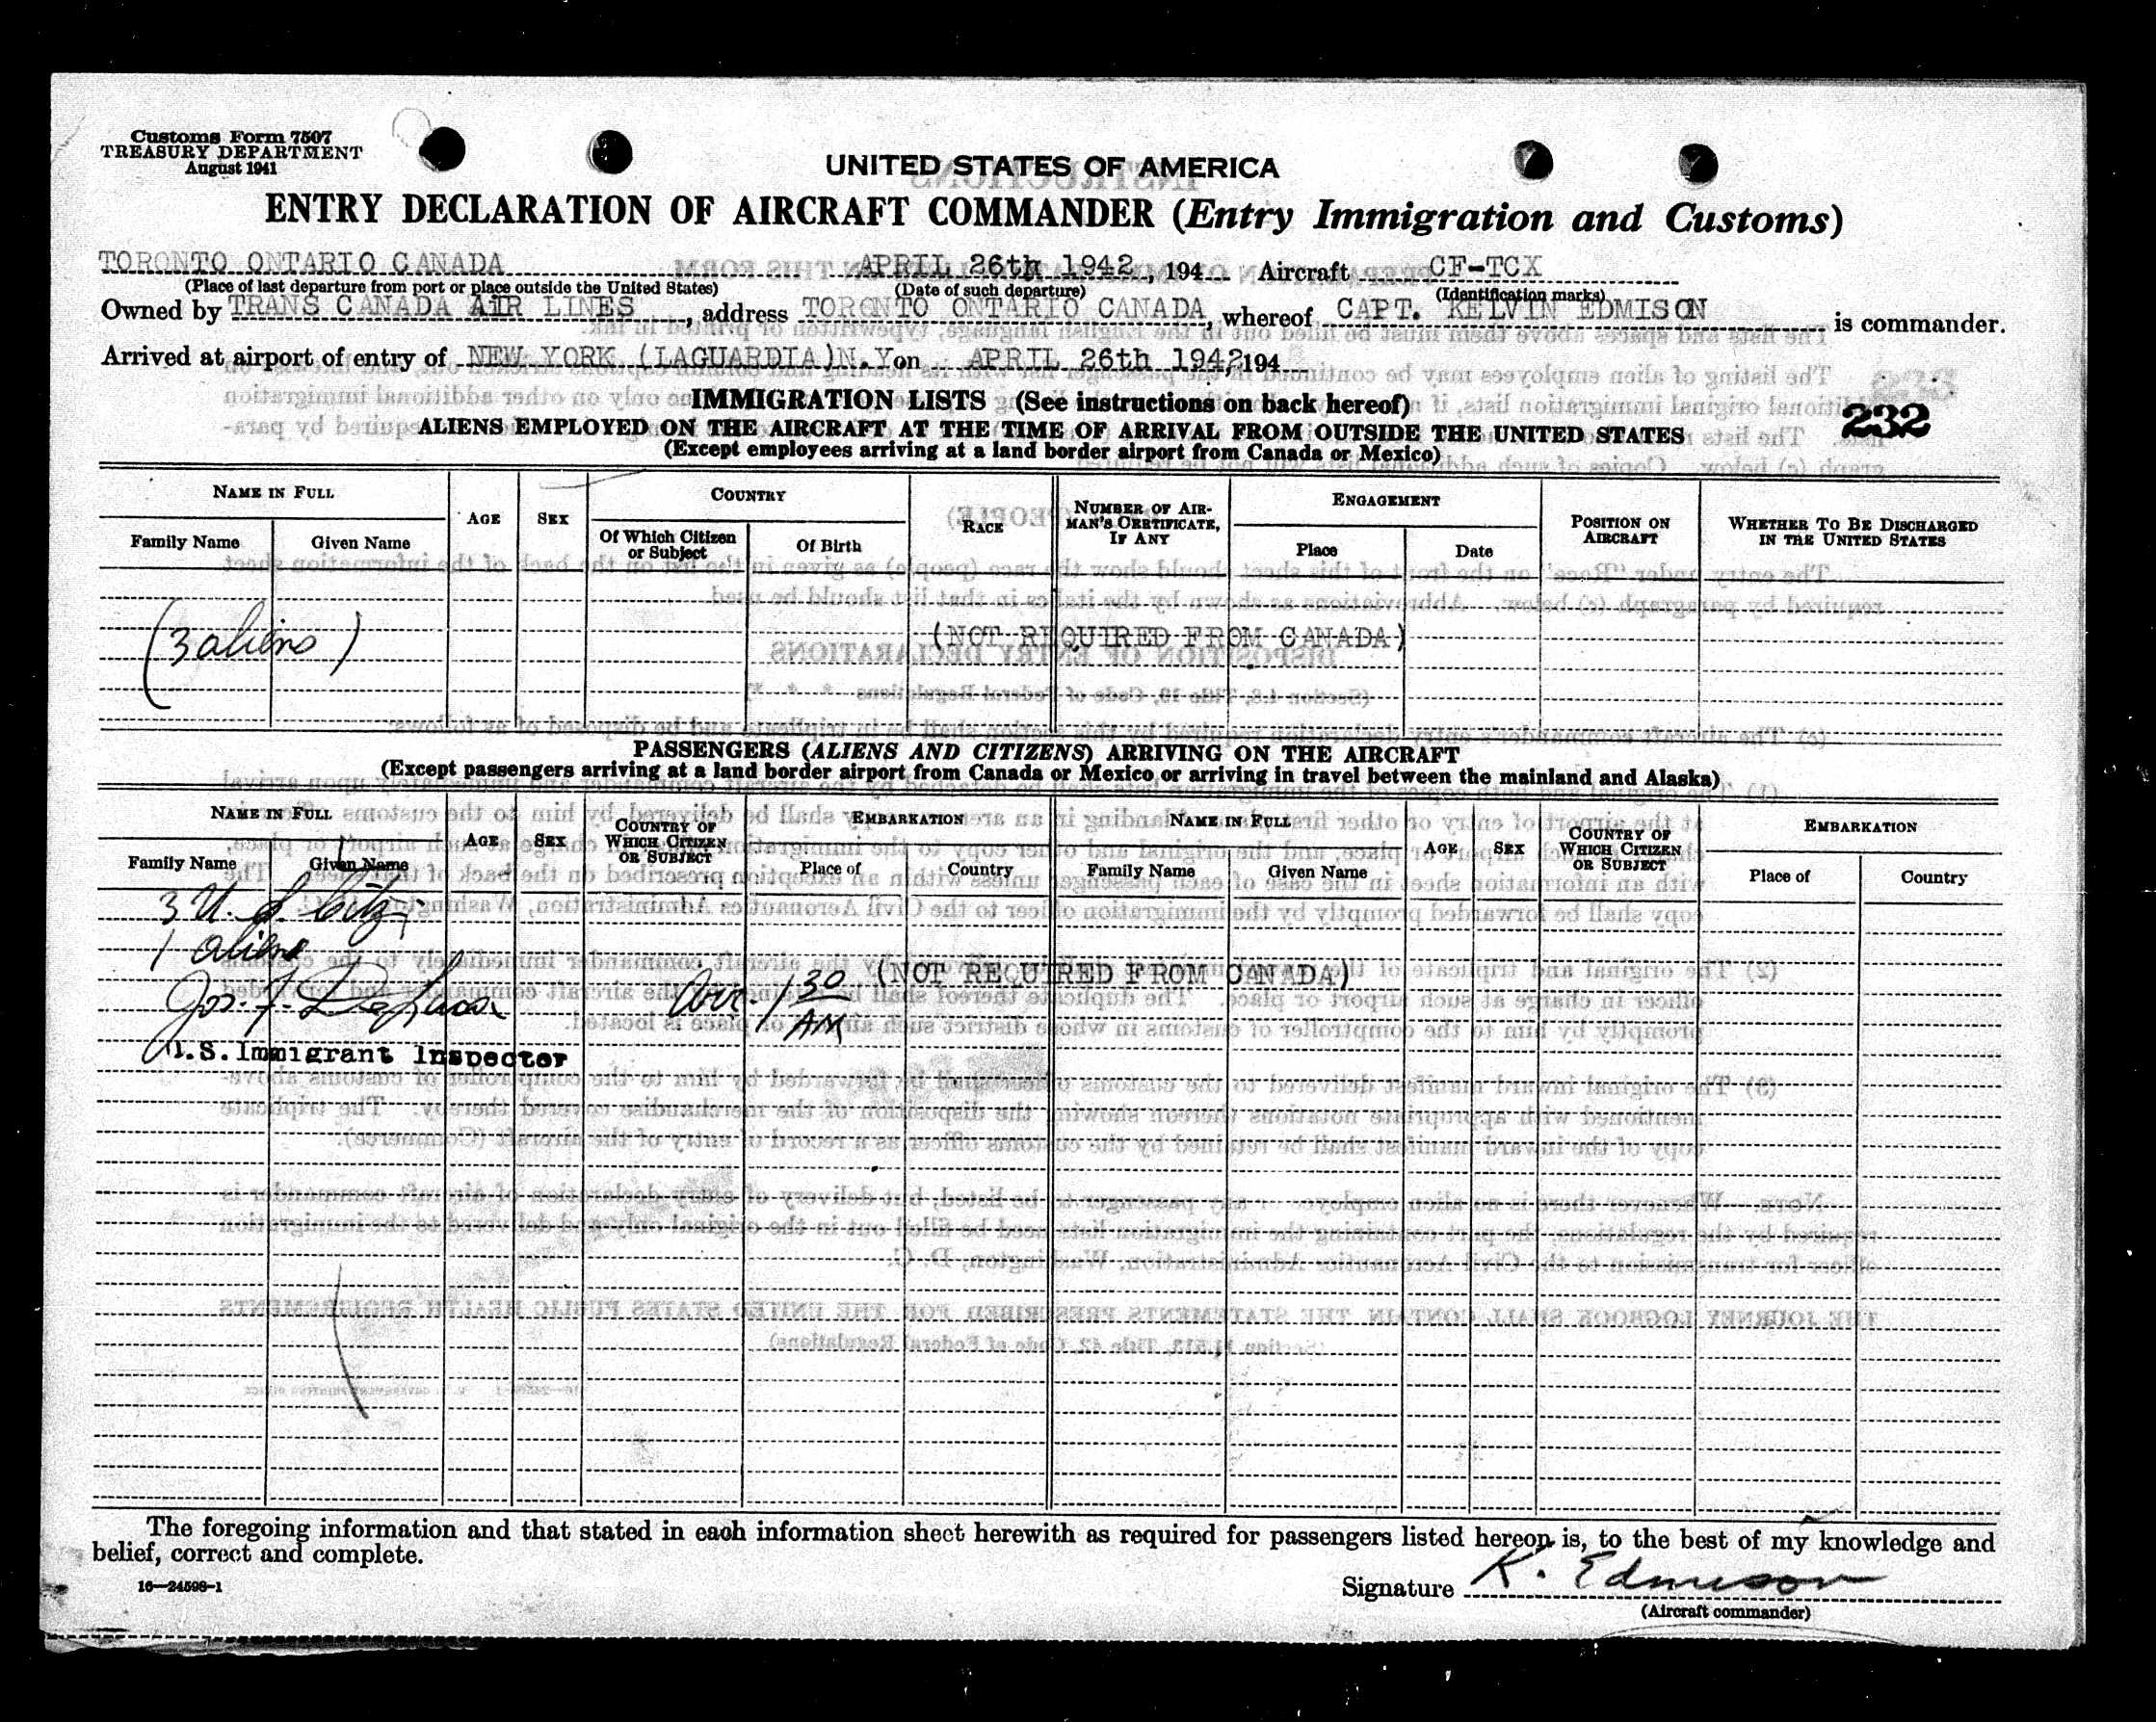 Customs Form 7507
TREASURY DEPARTMENT
August 1941
UNITED STATES OF AMERICA
ENTRY DECLARATION OF AIRCRAFT COMMANDER (Entry Immigration and Customs)
TORONTO ONTARIO CANADA APRIL 26th 1942, 194 Aircraft CF-TCX
(Place of last departure from port or place outside the United States) (Date of such departure) (Identification marks)
Owned by TRANS CANADA AIR LINES, address TORONTO ONTARIO CANADA, whereof CAPT. KELVIN EDMISON is commander.
Arrived at airport of entry of NEW YORK (LAGUARDIA)N.Y on APRIL 26th 1942, 194
IMMIGRATION LISTS (See instructions on back hereof)
232
ALIENS EMPLOYED ON THE AIRCRAFT AT THE TIME OF ARRIVAL FROM OUTSIDE THE UNITED STATES
(Except employees arriving at a land border airport from Canada or Mexico)
NAME IN FULL
Family Name Given Name
AGE
SEX
COUNTRY
Of Which Citizen or Subject
Of Birth
RACE
NUMBER OF AIRMAN'S CERTIFICATE, IF ANY
ENGAGEMENT
Place Date
POSITION ON AIRCRAFT
WHETHER TO BE DISCHARGED IN THE UNITED STATES
(3 aliens)
(NOT REQUIRED FROM CANADA)
PASSENGERS (ALIENS AND CITIZENS) ARRIVING ON THE AIRCRAFT
(Except passengers arriving at a land border airport from Canada or Mexico or arriving in travel between the mainland and Alaska)
NAME IN FULL
Family Name Given Name
AGE
SEX
COUNTRY OF WHICH CITIZEN OR SUBJECT
EMBARKATION
Place of Country
NAME IN FULL
Family Name Given Name
AGE
SEX
COUNTRY OF WHICH CITIZEN OR SUBJECT
EMBARKATION
Place of Country
3 U. S. Citz.
1 aliens
Jos. F.
Arr. 1 30 AM
(NOT REQUIRED FROM CANADA)
U.S. Immigrant Inspector
The foregoing information and that stated in each information sheet herewith as required for passengers listed hereon is, to the best of my knowledge and
belief, correct and complete.
16—24598-1
Signature K. Edmison
(Aircraft commander)